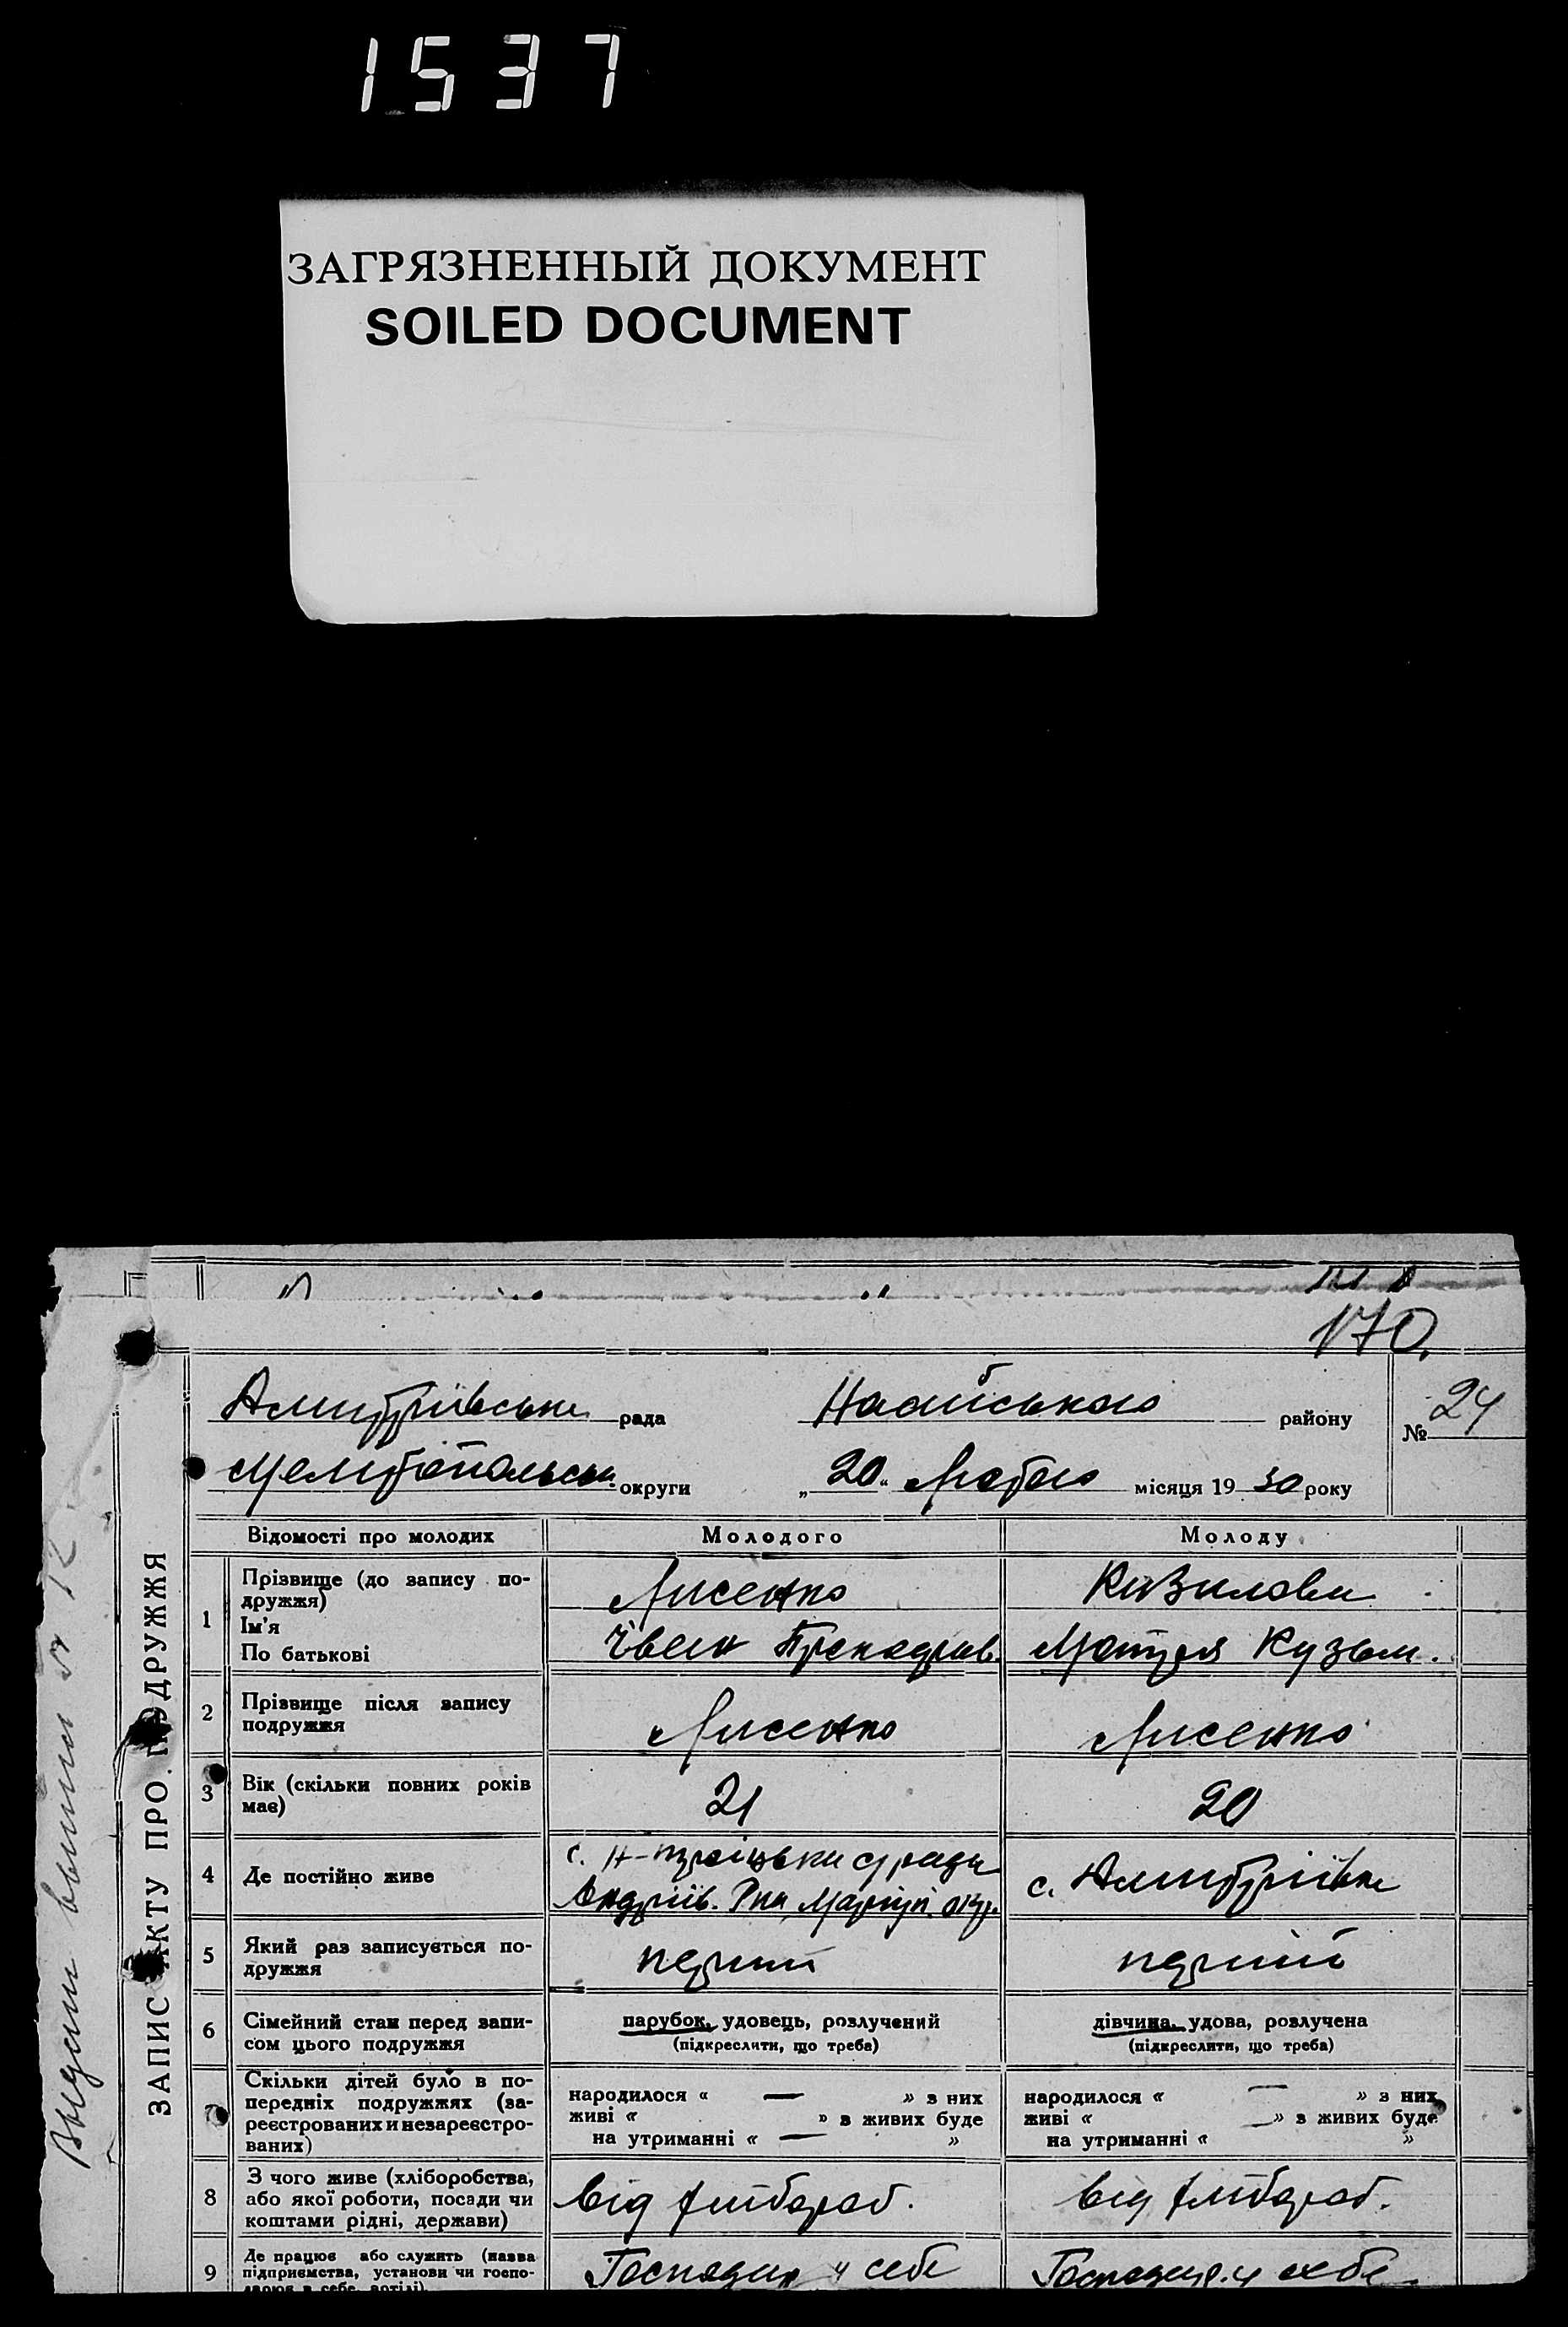 1537
ЗАГРЯЗНЕННЫЙ ДОКУМЕНТ
SOILED DOCUMENT
170.
Дмитрівська рада Ногайського району № 24
Мелітопольськ. округи „20“ Лютого місяця 1930 року
ЗАПИС АКТУ ПРО ПОДРУЖЖЯ
Відомості про молодих Молодого Молоду
1 Прізвище (до запису по-
дружжя) Лисенко
Ім'я
По батькові Кузьм.
2 Прізвище після запису
подружжя Лисенко Лисенко
3 Вік (скільки повних років
має) 21 20
4 Де постійно живе с. Дмитрівка
Андріїв. Р-на Маріуп. окр.
5 Який раз записується по-
дружжя перший перший
6 Сімейний стан перед запи-
сом цього подружжя
парубок, удовець, розлучений
(підкреслити, що треба)
дівчина, удова, розлучена
(підкреслити, що треба)
7 Скільки дітей було в по-
передніх подружжях (за-
реєстрованих и незареєстро-
ваних)
народилося « — » з них
живі « » в живих буде
на утриманні « — »
народилося « — » з них
живі « — » з живих буде
на утриманні « »
8 З чого живе (хліборобства,
або якої роботи, посади чи
коштами рідні, держави)
від хлібороб. від хлібороб.
9 Де працює або служить (назва
підприємства, установи чи госпо-
дарює в себе, артілі)
Господар у себе